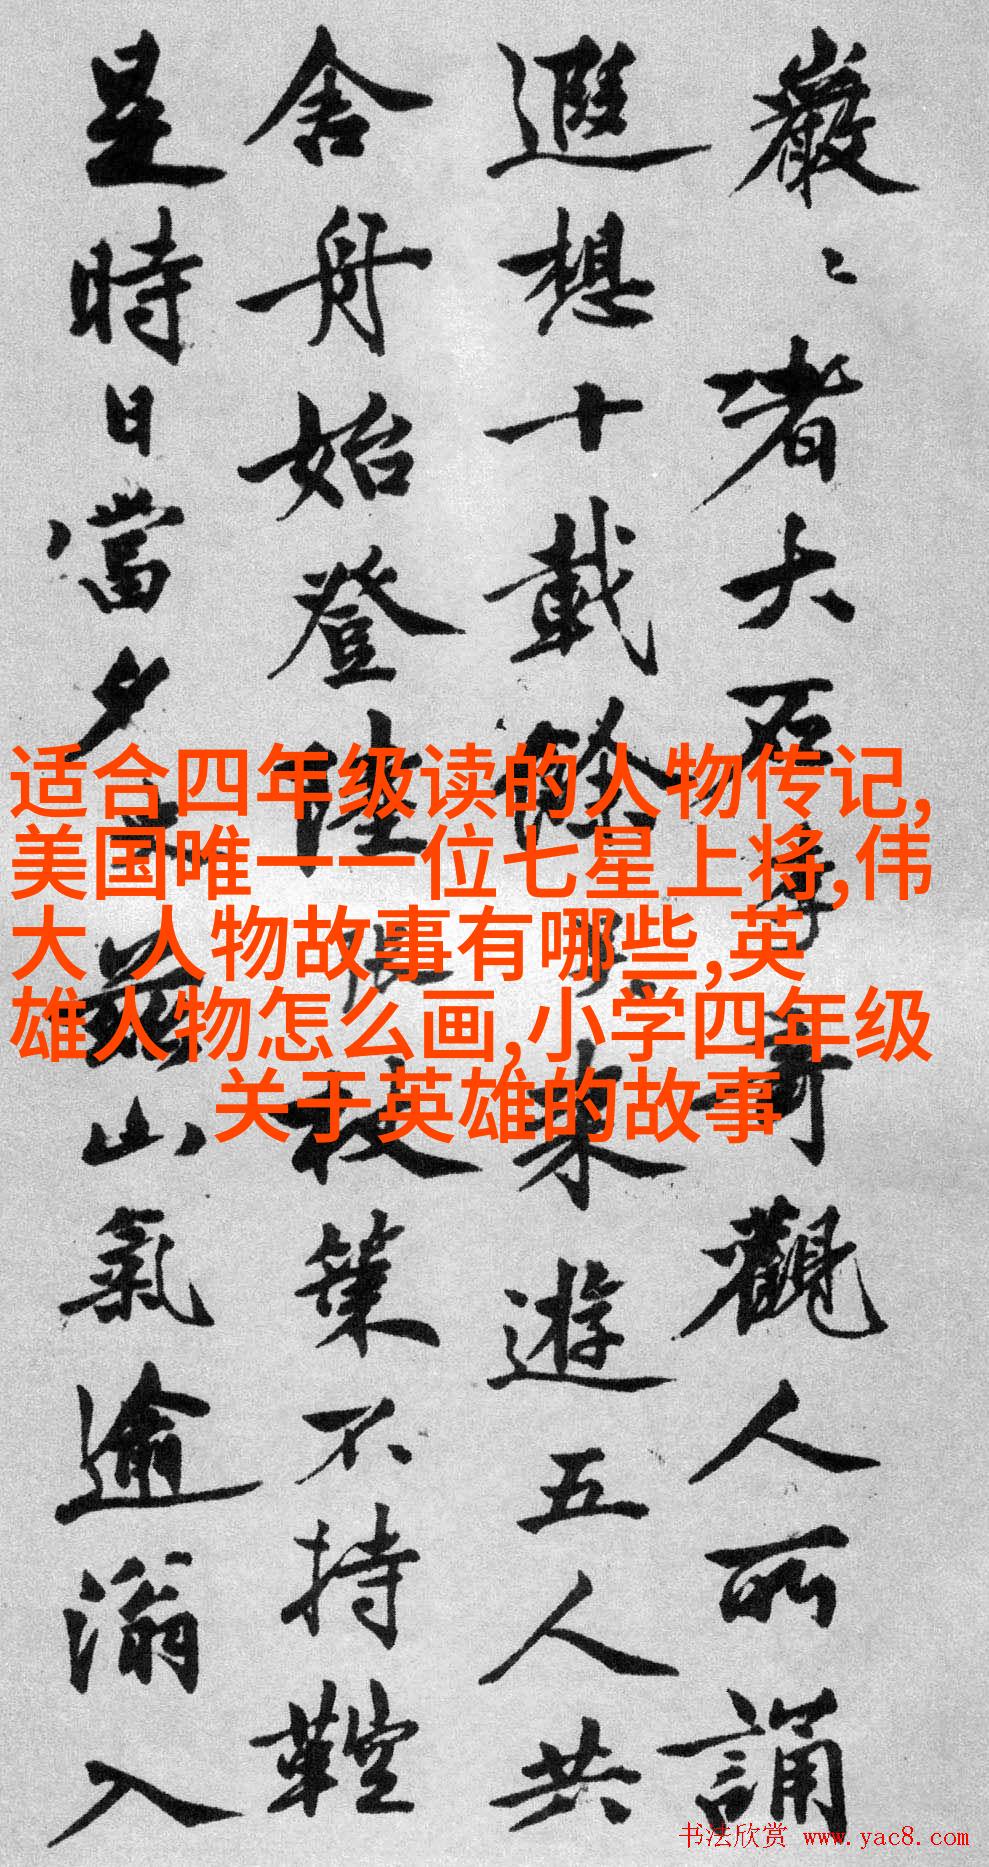 巖〻者大石
奇觀人所誦
遐想十載餘
來遊五人共
舍舟始登陸
策不持鞚
是時日當夕
山氣逾滃入
适合四年级读的人物传记,
美国唯一一位七星上将,伟
大 人物故事有哪些,英
雄人物怎么画,小学四年级
关于英雄的故事
书法欣赏 www.yac8.com